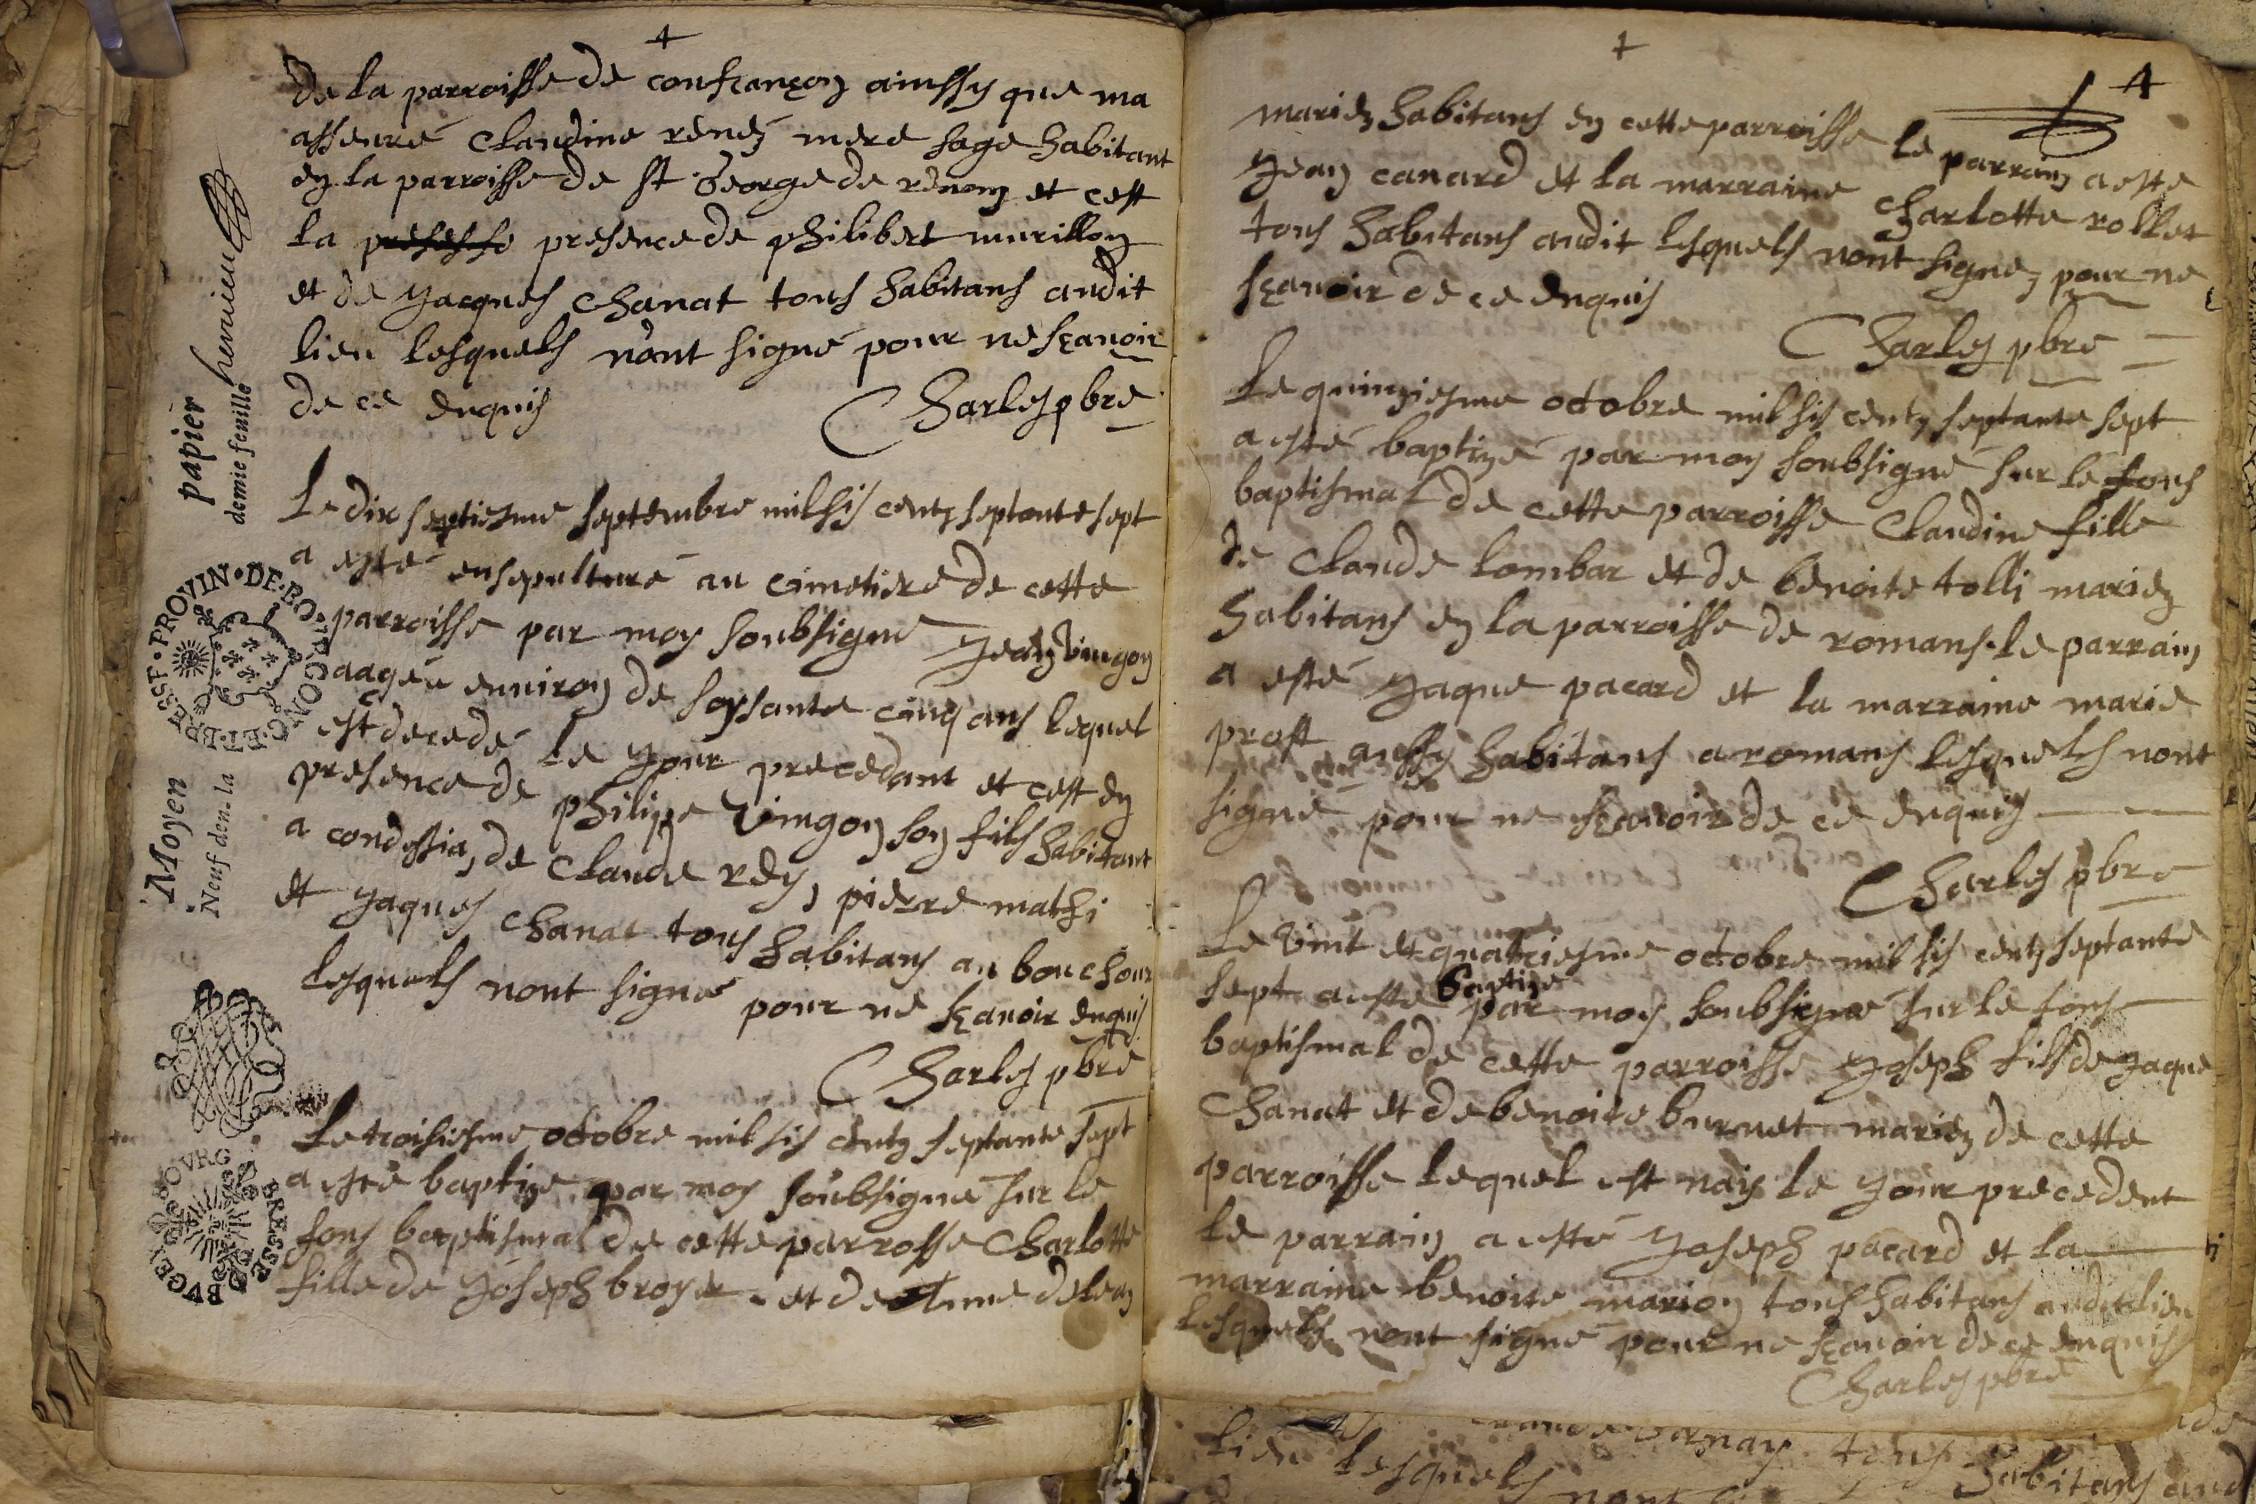 +
de la parroisse de confrançon ainssy que ma
asseuré Claudine renéz mere sage habitant
en la parroisse de st George de renom et cest
la presence de philibert murillon
et de Jacques Chanat tous habitans audit
lieu lesquels n'ont signé pour ne sçauoir
de ce enquis Charles pbre
Le dix septiesme septembre mil sis centz septante sept
a esté ensepulturé au cimetiere de cette
parroisse par moy soubsigné Jean Vingon
aagéé enuiron de soyssante cinq ans lequel
est decedé le Jour precedant et cest en
presence de philippe Vingon son fils habitant
a condessia, de Claude rey, pierre mathi
et Jaques Chanat tous habitans au bouchour
lesquels nont signé pour ne sçauoir enquis
Charles pbre
Le troisiesme octobre mil sis centz septante sept
a esté baptizé par moy soubsigné sur le
fons baptismal de cette parrosse Charlotte
fille de Joseph broyer et de
papier
demie feuille
Moyen
Neuf den. la
PROVIN·DE·BO
ET·BRESS
BOVRG
BRESSE
BVGEY
+
4
mariez habitans en cette parroisse le parrain a esté
Jean canard et la marraine Charlotte rollet
tous habitans audit lesquels nont signez pour ne
sçauoir de ce enquis
Charles pbre
Le quinziesme octobre mil sis centz septante sept
a esté baptizé par moy soubsigné sur le fons
baptismal de cette parroisse Claudine fille
de Claude lombar et de benoite tolli mariez
habitans en la parroisse de romans le parrain
a esté Jaque pacard et la marraine marie
prost aussy habitans a romans lesquels nont
signé pour ne sçauoir de ce enquis
Charles pbre
Le Vint et quatriesme octobre mil sis centz septante
sept a esté baptizé par moy soubsigné sur le fons
baptismal de cette parroisse Joseph fils de Jaque
Chanat et de benoite burnet mariez de cette
parroisse lequel est nais le Jour precedent
le parrain a esté Joseph pacard et la
marraine benoite marion tous habitans audit lieu
lesquels nont signé pour ne sçauoir de ce enquis
Charles pbre
lien lesquels
habitans aud